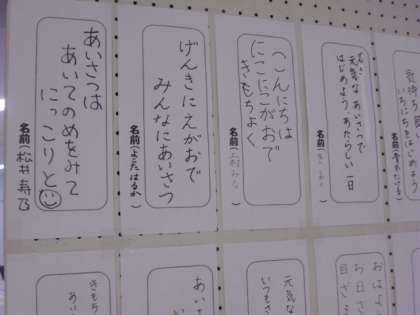 あいさつは
あいてのめをみて
にっこりと
名前(松井寿乃
げんきにえがおで
みんなにあいさつ
名前(
こんにちは
にこにこがおで
きもちよく
名前(
元気な あいさつで
はじめよう あたらしい一日
名前(
気持ち良く
いちにちをはじめよう
名前(
きもち
あいさ
元気な
いつもさ
おはよ
お日さ
目ざ